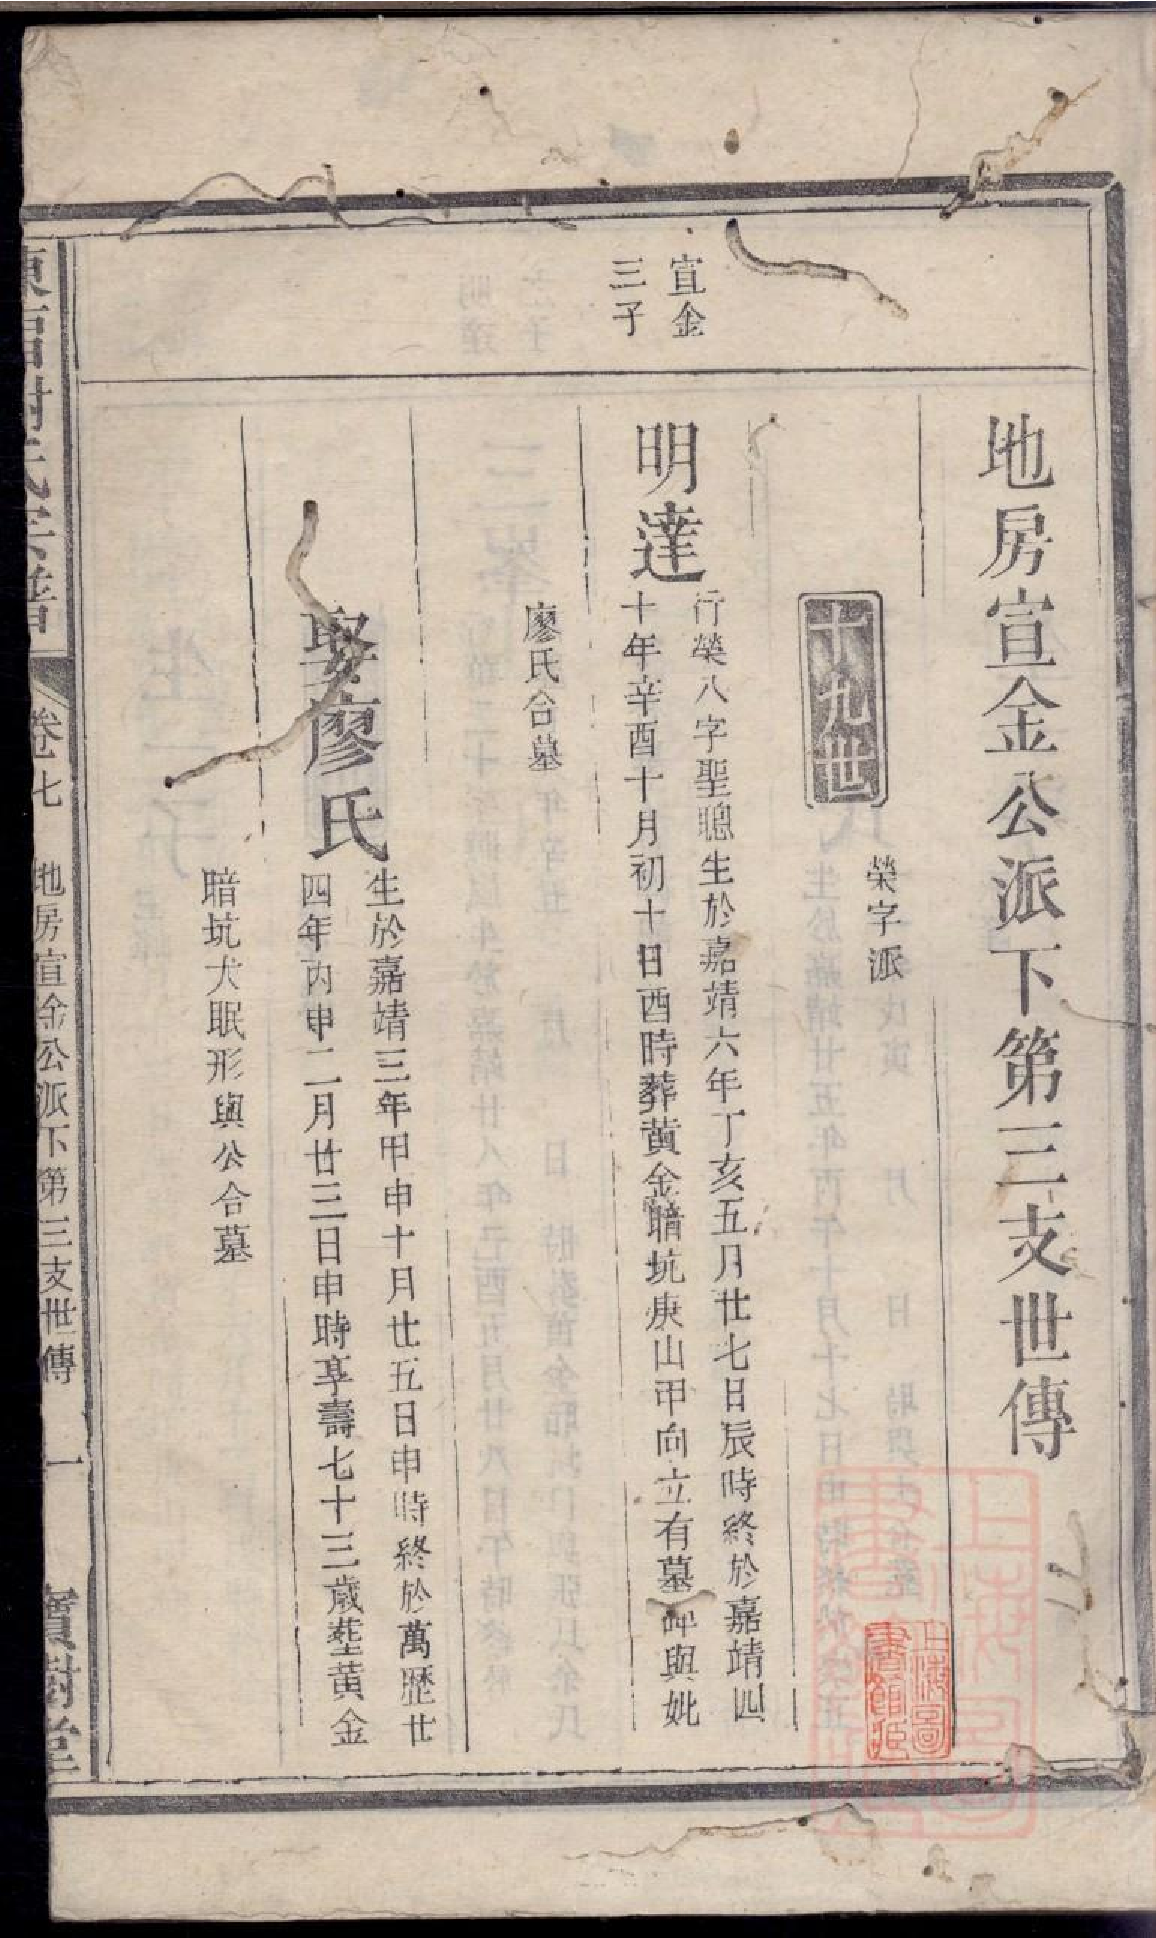 地房宣金公派下第三支世傳
十九世
榮字派
宣金
三子
明達
行榮八字聖聰生於嘉靖六年丁亥五月廿七日辰時終於嘉靖四
十年辛酉十月初十日酉時葬黄金暗坑庚山甲向立有墓碑與妣
廖氏合墓
娶廖氏
生於嘉靖三年甲申十月廿五日申時終於萬歷廿
四年丙申二月廿三日申時享壽七十三歲塟黄金
暗坑犬眠形與公合墓
氏宗譜
卷七
地房宣金公派下第三支世傳
一
寶樹堂
上海圖
書館藏